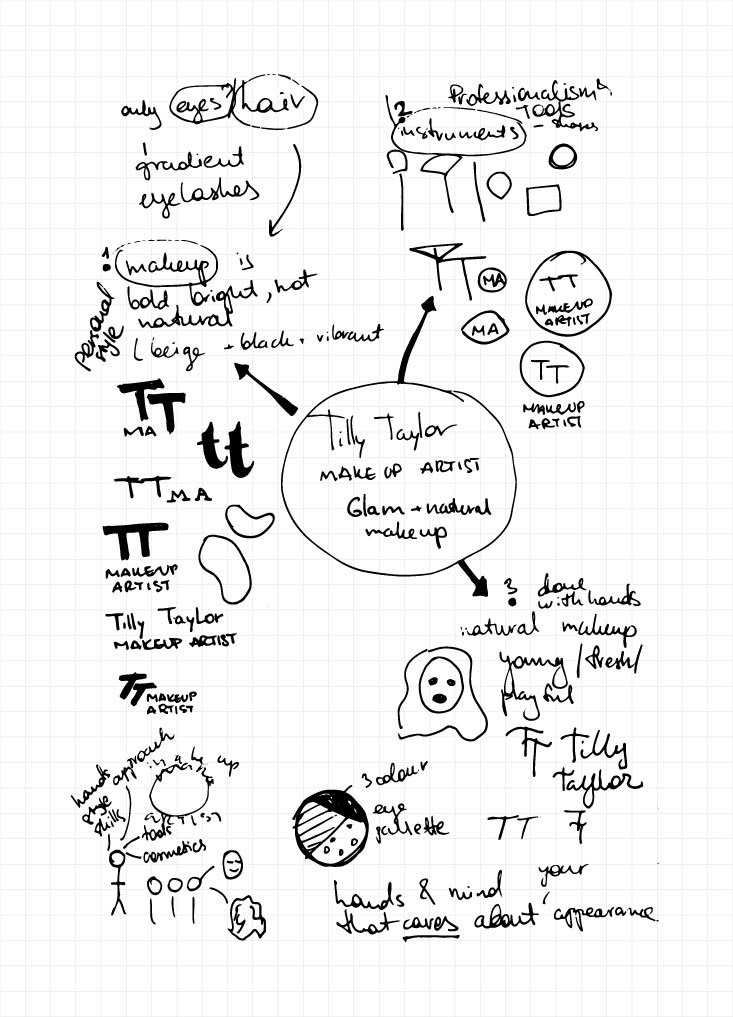 only eyes / hair
gradient
eyelashes
1
makeup is
bold, bright, not
natural
beige + black + vibrant
personal
style
2
Professionalism
TOOLS
instruments - shapes
TT MA
MA
TT
MAKEUP
ARTIST
TT
MAKEUP
ARTIST
Tilly Taylor
MAKE UP ARTIST
Glam + natural
makeup
TT
MA
tt
TT MA
TT
MAKEUP
ARTIST
Tilly Taylor
MAKEUP ARTIST
TT MAKEUP
ARTIST
3 done
with hands
natural makeup
young / fresh /
playful
TT Tilly
Taylor
TT
3 colour
eye
pallette
hands
style
skills
approach
make up
artist
tools
cosmetics
hands & mind your
that cares about appearance